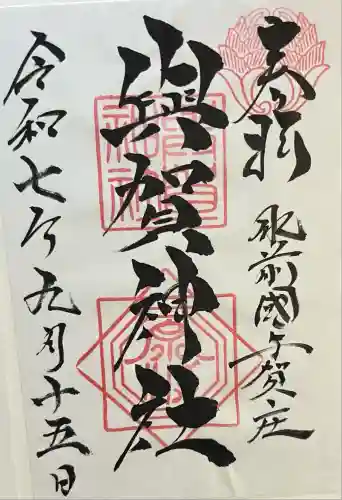 奉拝
肥前國与賀庄
與賀神社
令和七年九月十五日